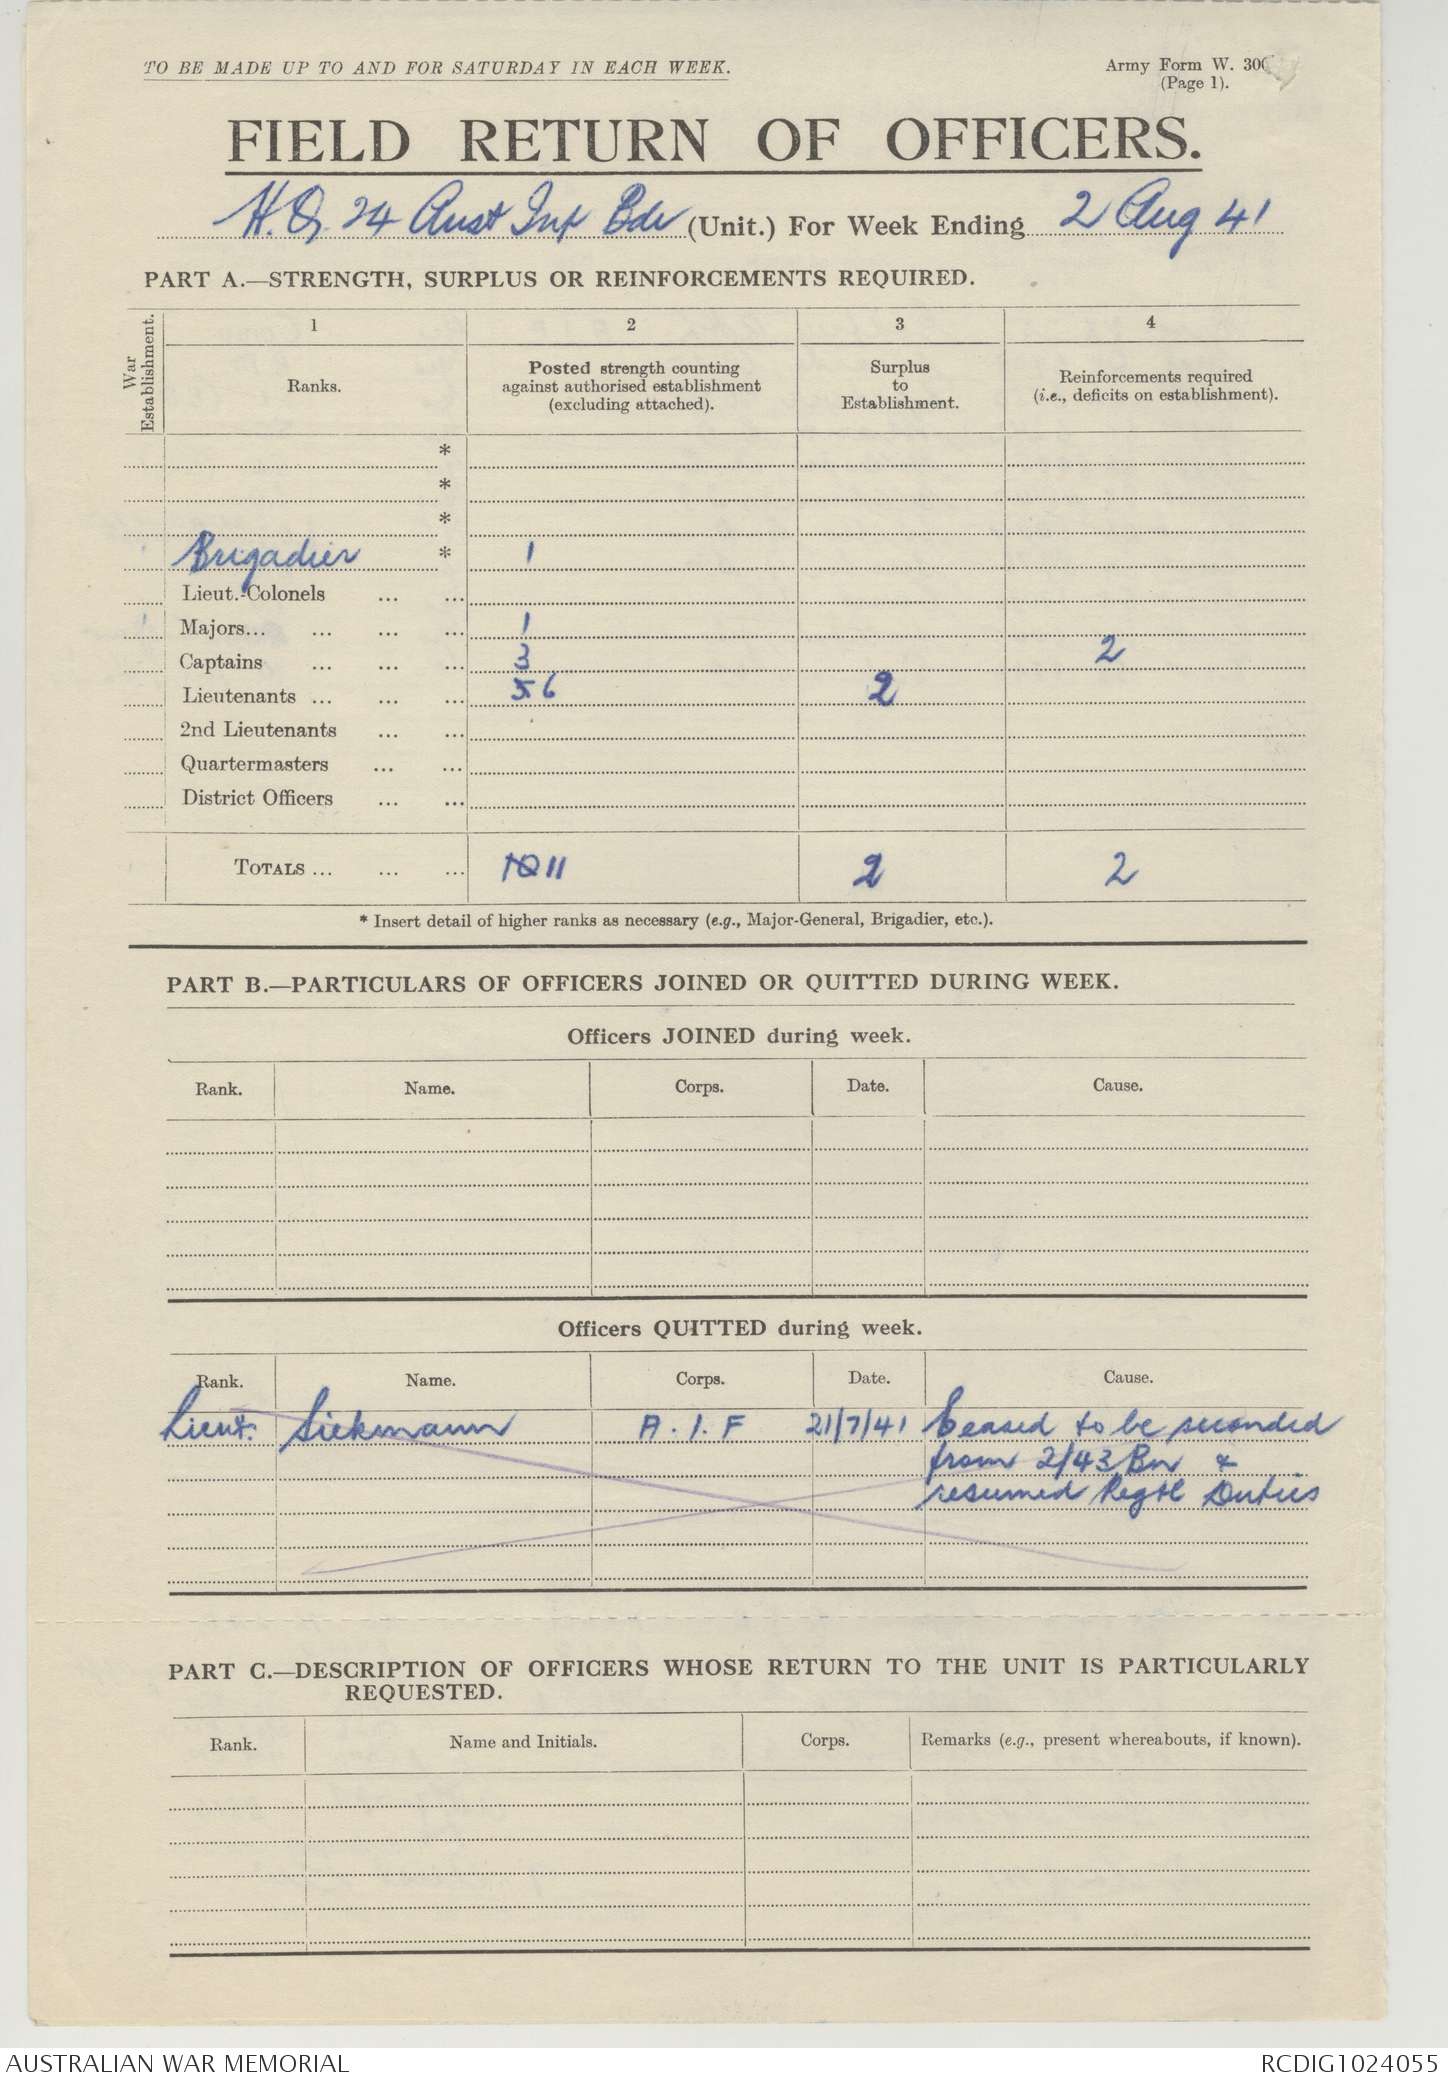 TO BE MADE UP TO AND FOR SATURDAY IN EACH WEEK.
Army Form W. 300
(Page 1).
FIELD RETURN OF OFFICERS.
H.Q. 24 Aust Inf Bde (Unit.) For Week Ending 2 Aug 41
PART A.—STRENGTH, SURPLUS OR REINFORCEMENTS REQUIRED.
War Establishment.
1 2 3 4
Ranks.
Posted strength counting
against authorised establishment
(excluding attached).
Surplus
to
Establishment.
Reinforcements required
(i.e., deficits on establishment).
*
*
*
Brigadier * 1
Lieut.-Colonels ... ...
1 Majors... ... ... ... 1
Captains ... ... ... 3 2
Lieutenants ... ... ... 5 6 2
2nd Lieutenants ... ...
Quartermasters ... ...
District Officers ... ...
TOTALS ... ... ... 10 11 2 2
* Insert detail of higher ranks as necessary (e.g., Major-General, Brigadier, etc.).
PART B.—PARTICULARS OF OFFICERS JOINED OR QUITTED DURING WEEK.
Officers JOINED during week.
Rank. Name. Corps. Date. Cause.
Officers QUITTED during week.
Rank. Name. Corps. Date. Cause.
Lieut. Siekmann A.I.F 21/7/41 Ceased to be seconded
from 2/43 Bn &
resumed Regtl Duties
PART C.—DESCRIPTION OF OFFICERS WHOSE RETURN TO THE UNIT IS PARTICULARLY
REQUESTED.
Rank. Name and Initials. Corps. Remarks (e.g., present whereabouts, if known).
AUSTRALIAN WAR MEMORIAL
RCDIG1024055